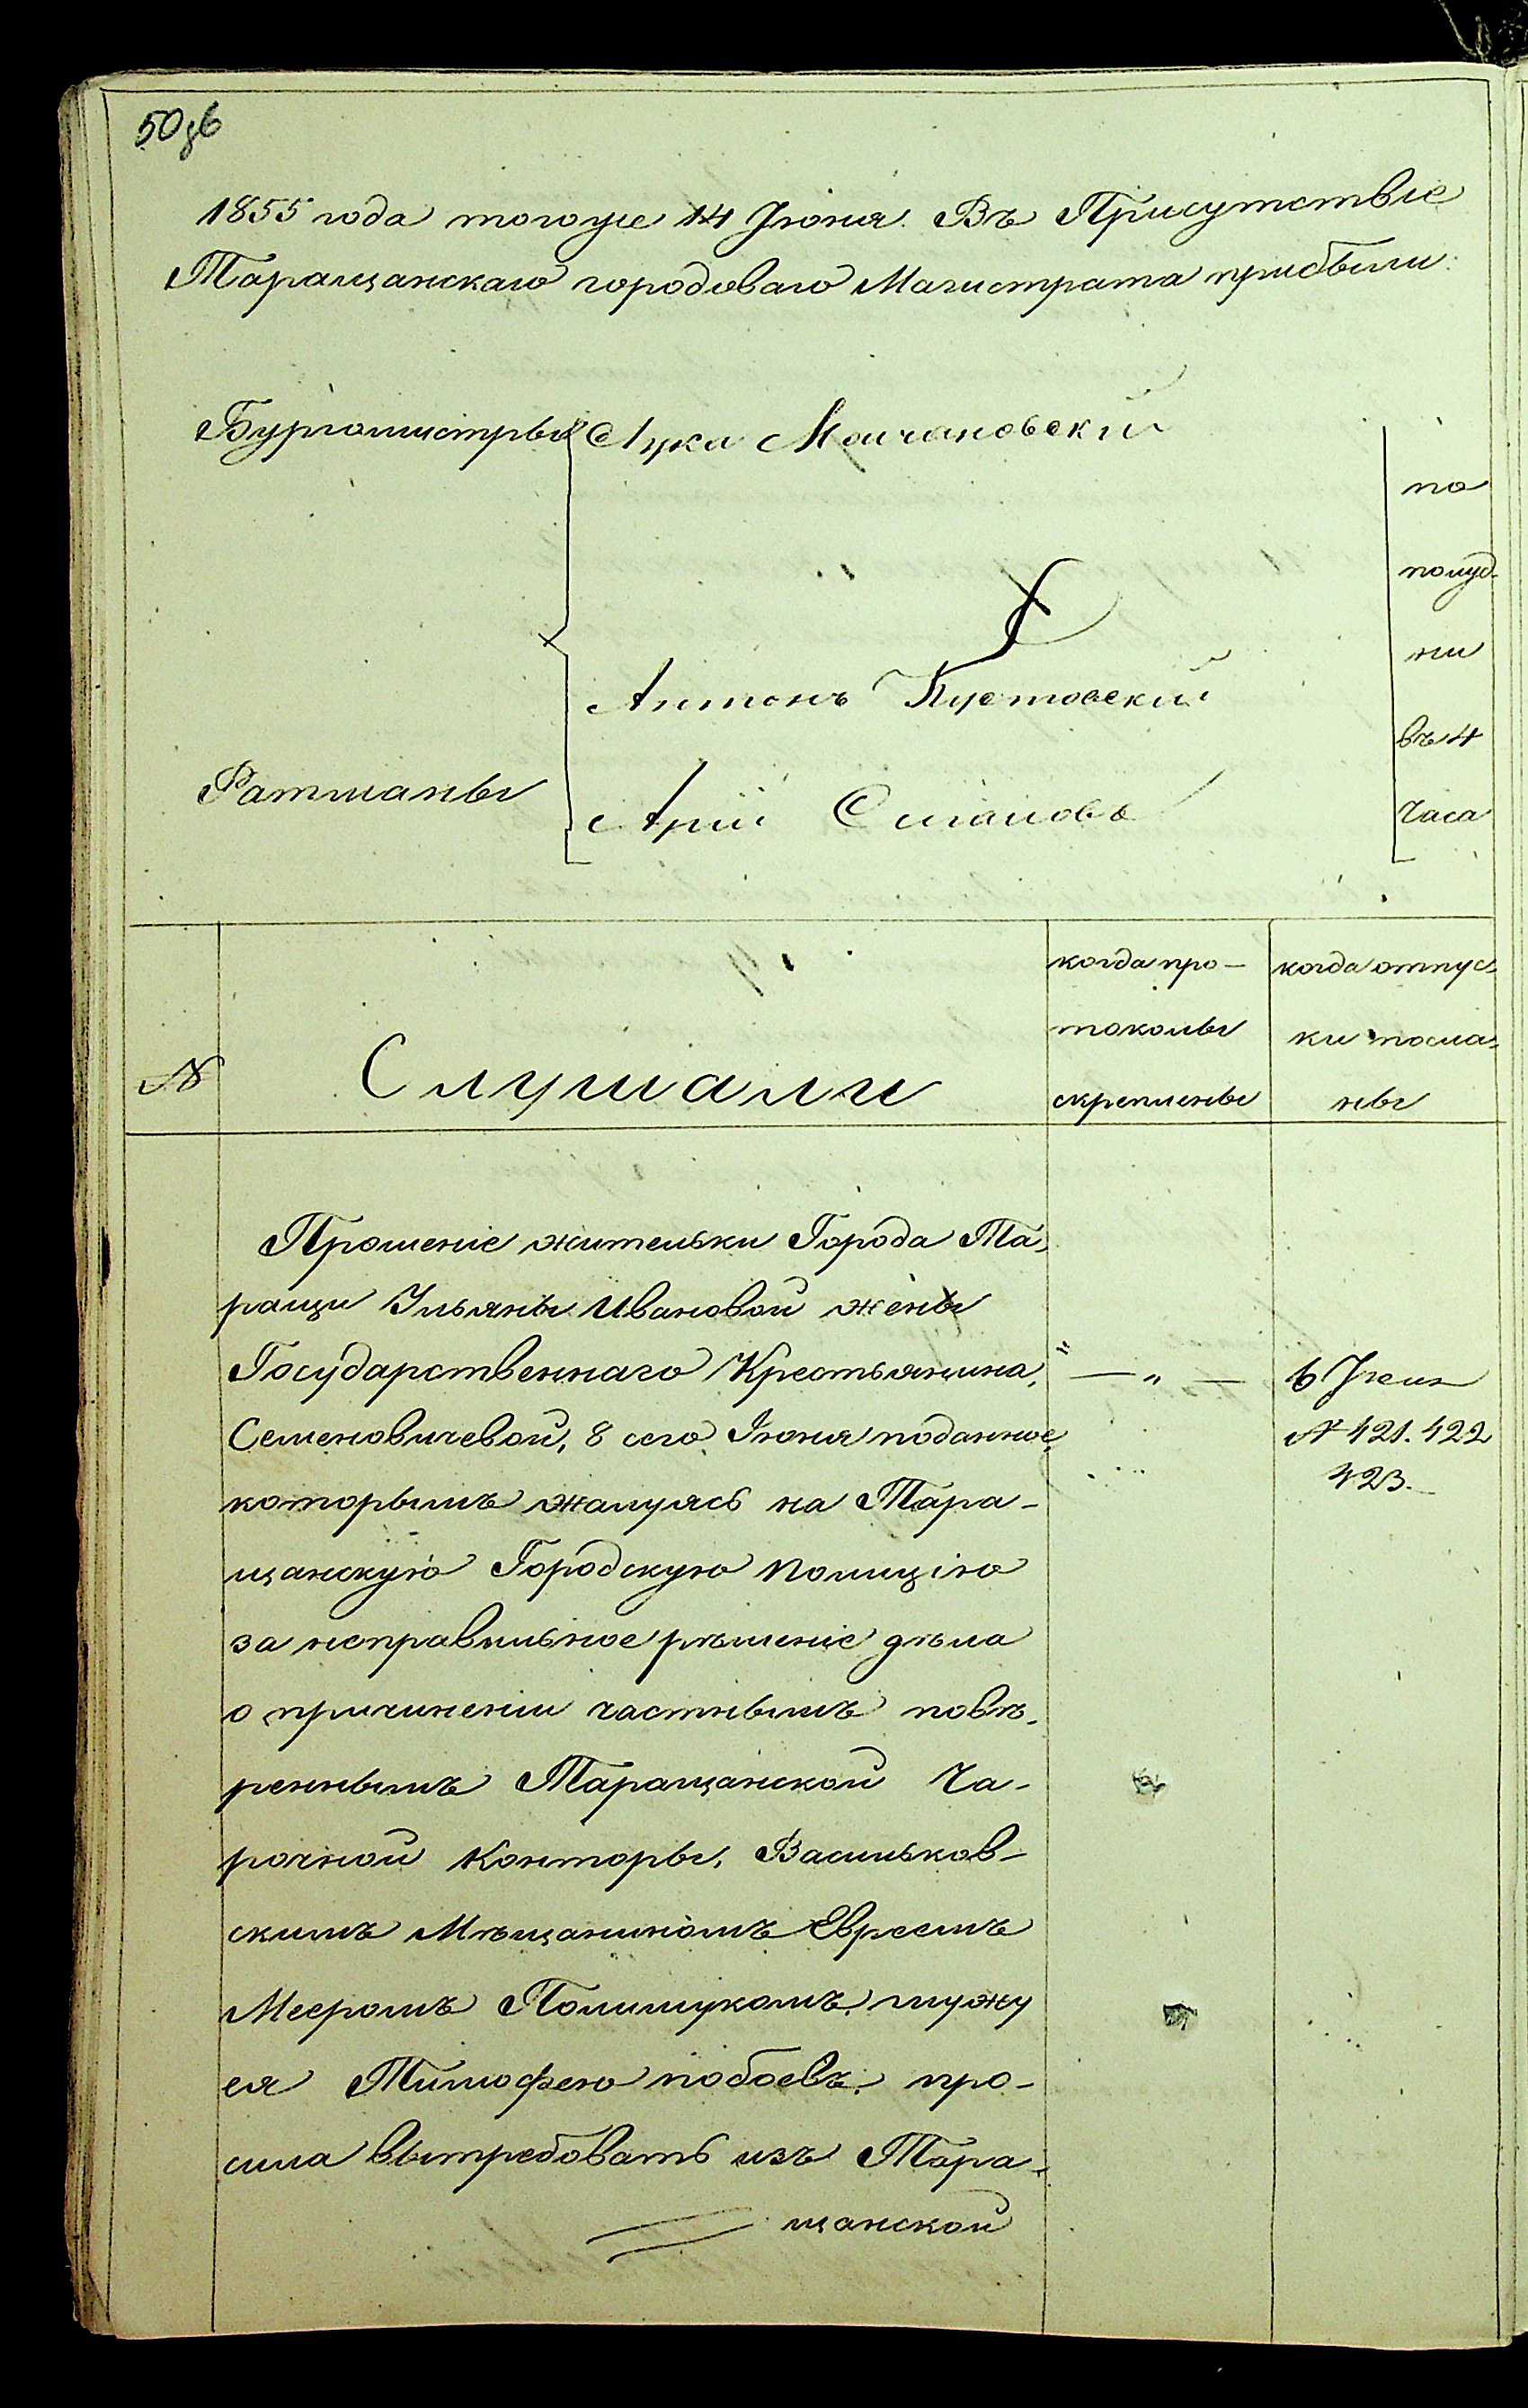 50об
1855 года тогоже 14 Іюня. Въ Присутствіе
Таращанскаго городоваго Магистрата прибыли:
Бургомистры Лука Молчановскій
по
полуд-
ни
Антонъ Пустовскій
въ 4
Ратманы
Арій
часа
№
Слушали
когда про-
токолы
скреплены
когда отпус-
ки посла-
ны
Прошеніе жительки Города Та-
ращи Ульяны Ивановой жены
Государственнаго Крестьянина,
Семеновичевой, 8 сего Іюня поданное,
которымъ жалуясь на Тара-
щанскую Городскую Полицію
за неправильное рѣшеніе дѣла
о причиненіи частнымъ повѣ-
реннымъ Таращанской Ча-
рочной Конторы, Васильков-
скимъ Мѣщаниномъ Евреемъ
Мееромъ Полищукомъ, мужу
ея Тимофею побоевъ, про-
сила вытребовать изъ Тара-
щанской
— „ —
6 Іюля
№ 421. 422
423.